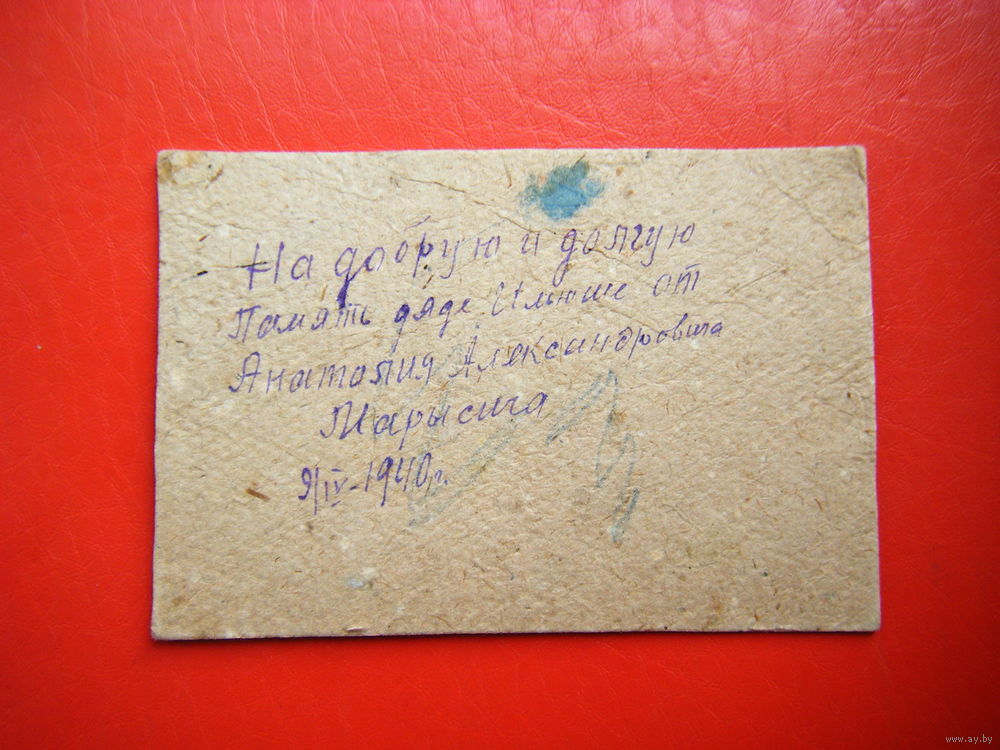 На добрую и долгую
Память дяде Илюше от
Анатолия Александровича
Марысича
9/IV-1940г.
www.ay.by